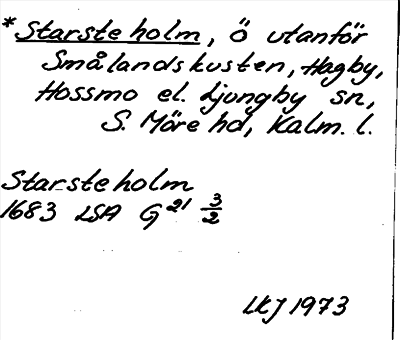 *Starsteholm, ö utanför
Smålandskusten, Hagby,
Hossmo el. Ljungby sn,
S. Möre hd, Kalm. l.
Starsteholm
1683 LSA G 21 3/2
LKJ 1973